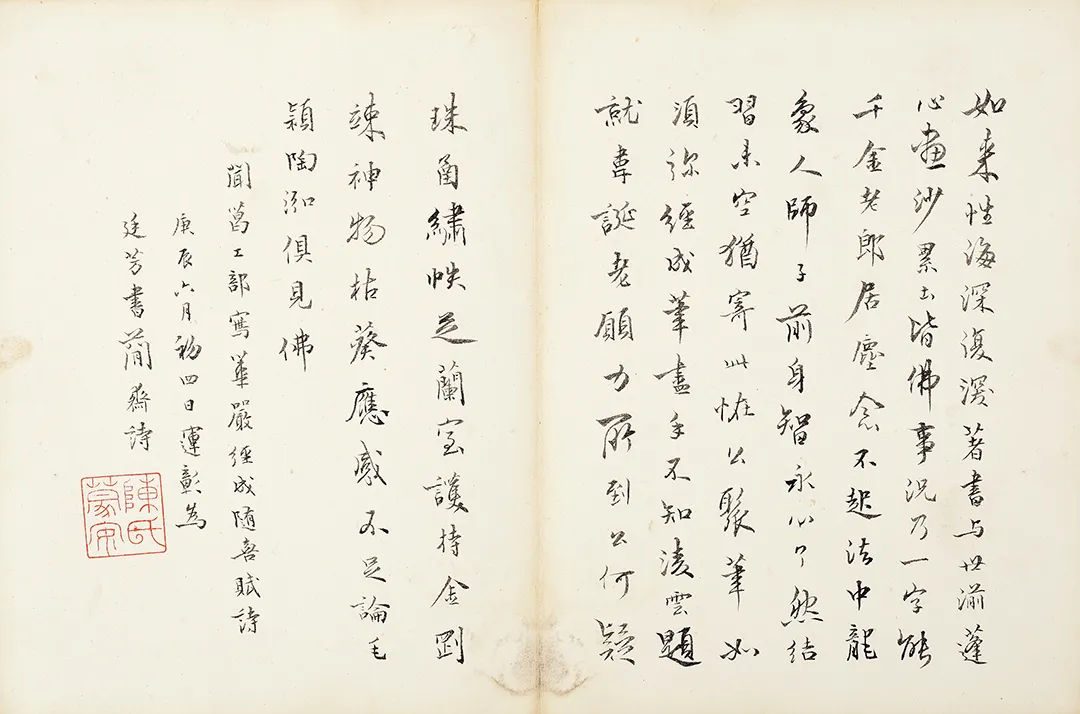 如来性海深復深著書与世湔蓬
心畫沙累土皆佛事况乃一字能
千金老郎居塵念不起法中龍
象人師子前身智永心了然結
習未空猶寄此怪公聚筆如
須弥經成筆盡手不知淩雲題
就韋誕老願力所到公何疑
珠函繡帙芝蘭室護持金剛
竦神物枯葵應感不足論毛
穎陶泓俱見佛
聞葛工部寫華嚴經成隨喜賦詩
庚辰六月初四日運彰為
廷芳書簡齋詩
陳氏
蒙安